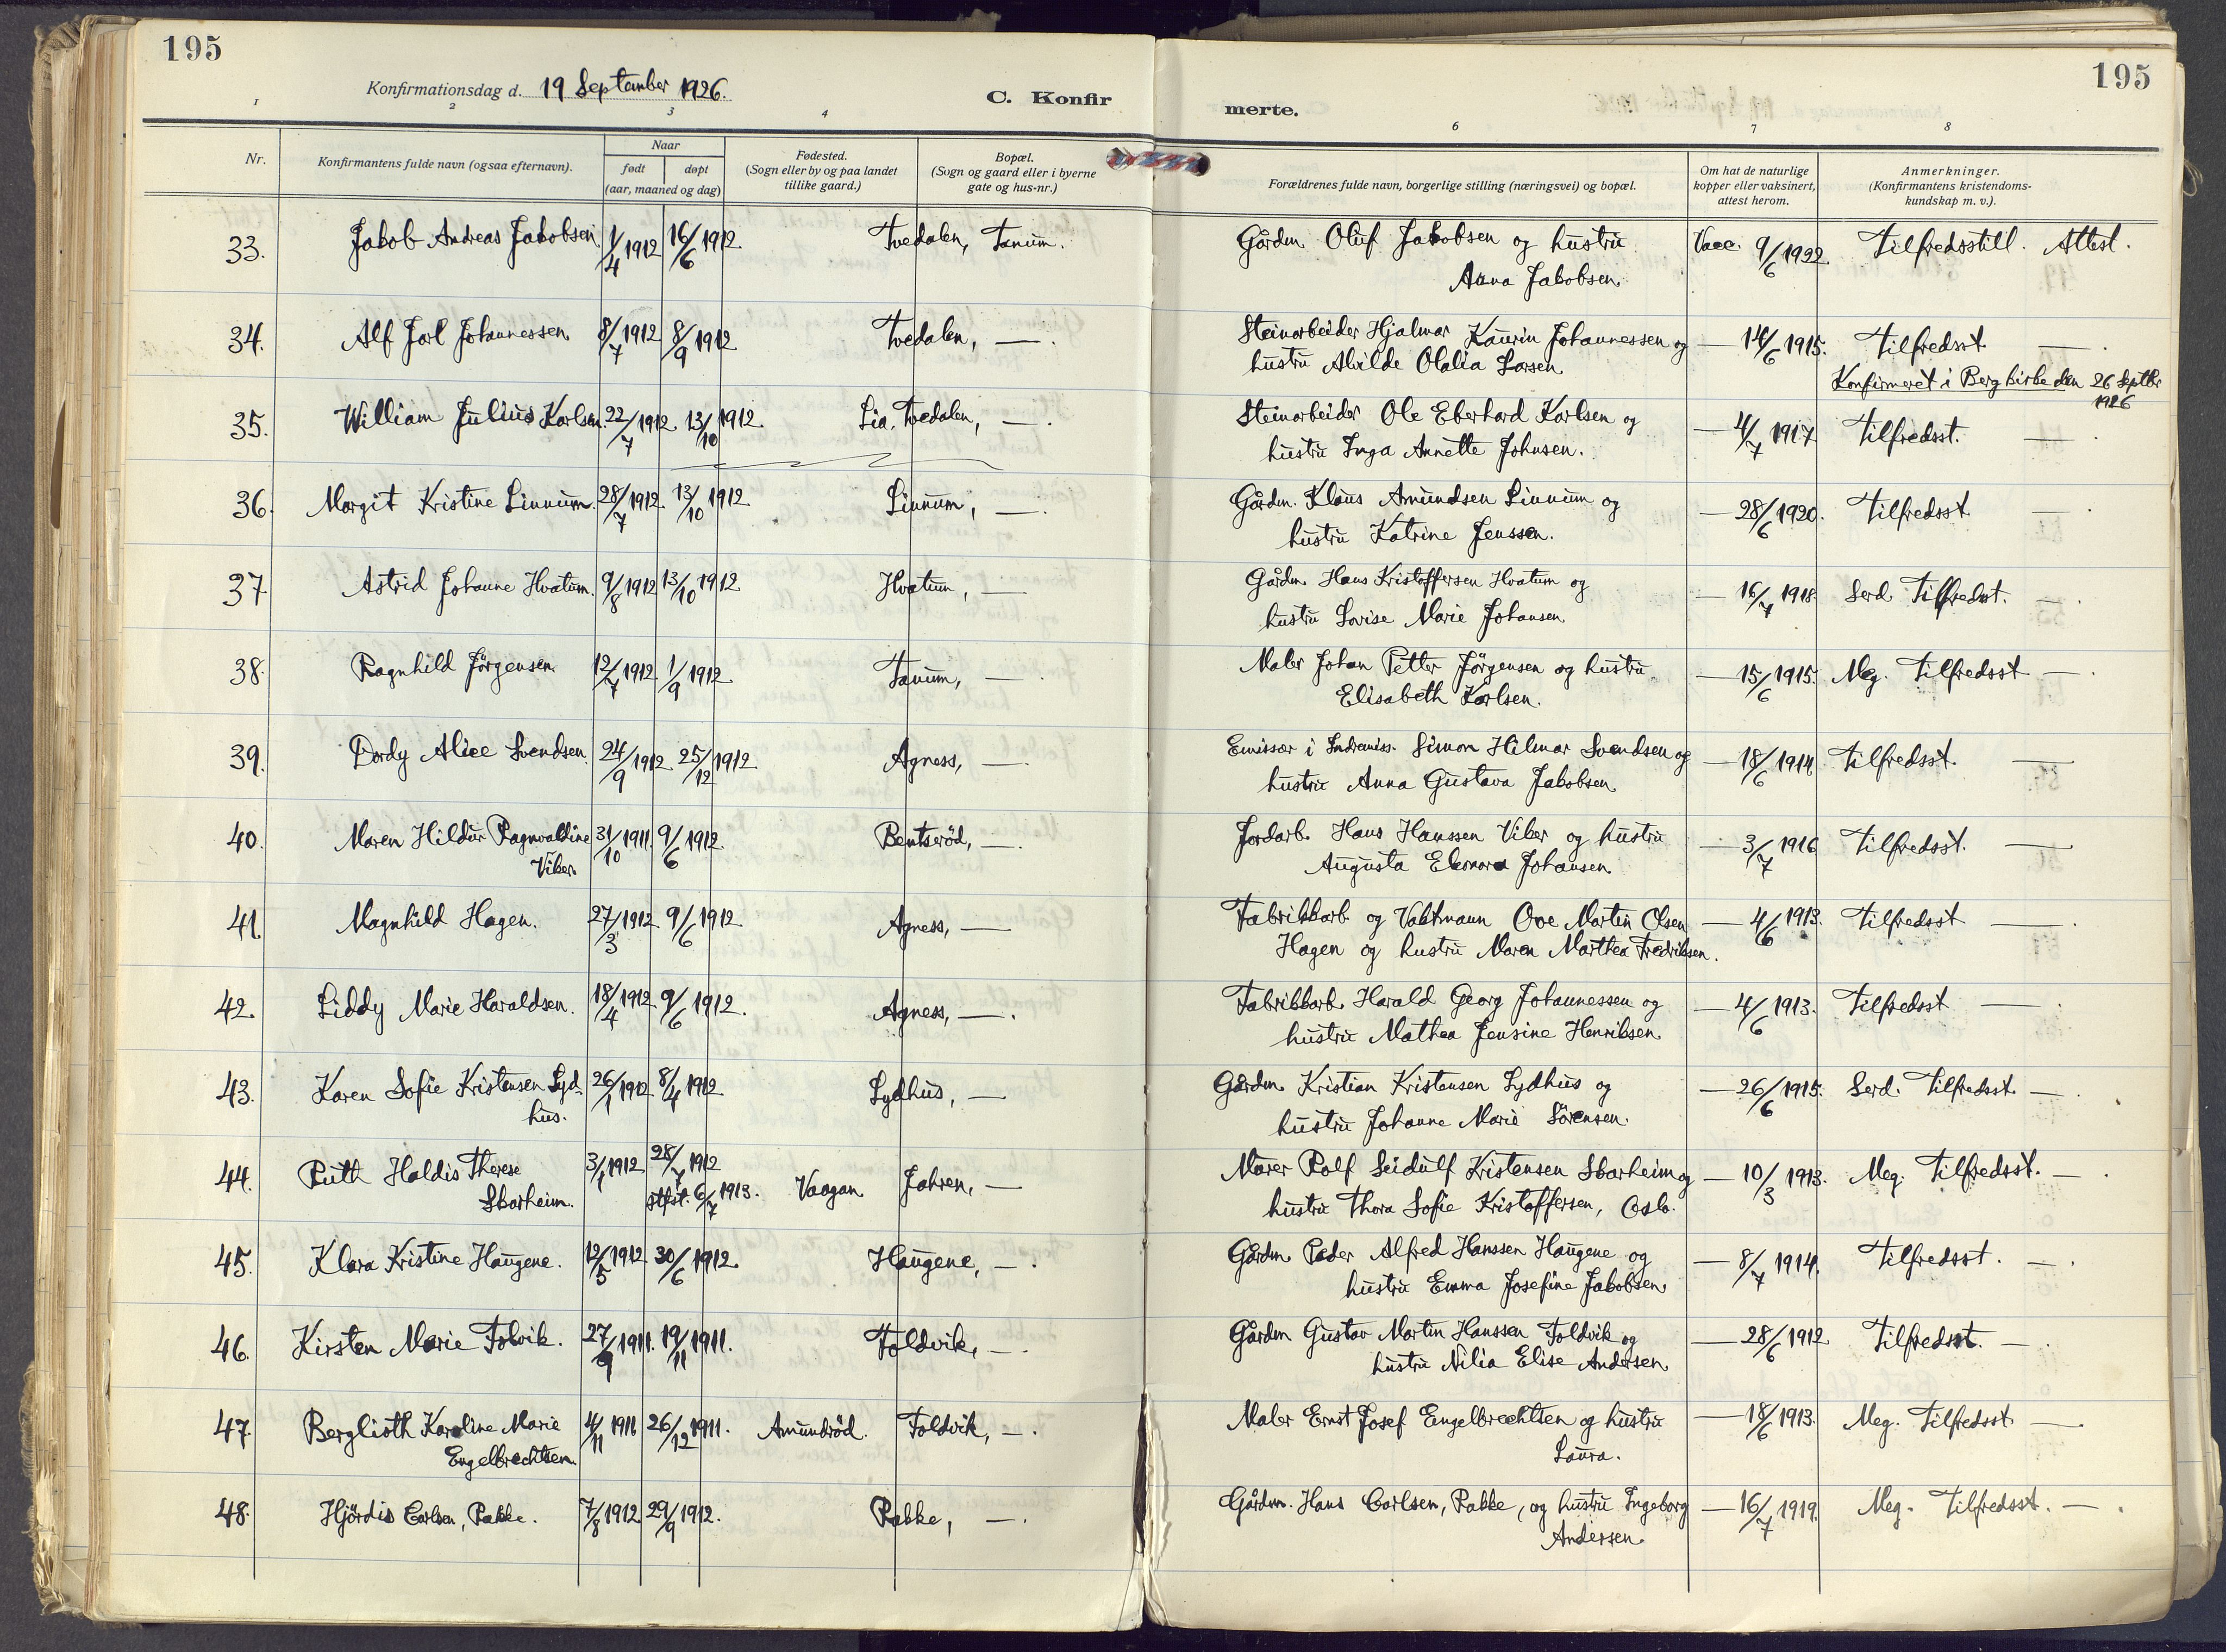 195
195
Konfirmationsdag d. 19 September 1926.
C. Konfir
merte.
1 2 3 4 6 7 8
Nr.
Konfirmantens fulde navn (ogsaa efternavn).
Naar
født døpt
(aar, maaned og dag)
Fødested.
(Sogn eller by og paa landet
tillike gaard.)
Bopæl.
(Sogn og gaard eller i byerne
gate og hus-nr.)
Forældrenes fulde navn, borgerlige stilling (næringsvei) og bopæl.
Om hat de naturlige
kopper eller vaksinert,
attest herom.
Anmerkninger.
(Konfirmantens kristendoms-
kundskap m. v.).
33. Jakob Andreas Jakobsen. 1/4 1912 16/6 1912. Tvedalen, Tanum. Gårdm. Oluf Jakobsen og hustru Vacc. 9/6 1922. Tilfredsstill. Attest.
Anna Jakobsen.
34. Alf Jarl Johannessen. 8/7 1912 8/9 1912 Tvedalen, —. Steinarbeider Hjalmar Kaurin Johannessen og — 14/6 1915. Tilfredsst. —.
hustru Alvilde Olalia Larsen. Konfirmeret i Berg kirke den 26 Septbr
1926
35. William Julius Karlsen. 22/7 1912. 13/10 1912. Lia, Tvedalen, —. Steinarbeider Ole Eberhard Karlsen og — 4/7 1917 Tilfredsst. —.
hustru Inga Annette Johnsen.
36. Margit Kristine Linnum. 28/7 1912. 13/10 1912 Linnum, —. Gårdm. Klaus Amundsen Linnum og — 28/6 1920. Tilfredsst. —.
hustru Katrine Jenssen.
37 Astrid Johanne Hvatum. 9/8 1912 13/10 1912 Hvatum, — Gårdm. Hans Kristoffersen Hvatum og — 16/7 1918. Serd. Tilfredsst. —.
hustru Lovise Marie Johansen
38. Ragnhild Jörgensen. 12/7 1912. 1/9 1912. Tanum, —. Maler Johan Petter Jörgensen og hustru — 15/6 1915. Meg. Tilfredsst —.
Elisabeth Karlsen.
39. Dordy Alice Svendsen. 24/9 1912. 25/12 1912. Agness, —. Emissær i Indremiss. Simon Hilmar Svendsen og — 18/6 1914 Tilfredsst. —
hustru Anna Gustava Jakobsen.
40. Maren Hildur Ragnvaldine 31/10 1911. 9/6 1912. Bentseröd, —. Jordarb. Hans Hanssen Viker og hustru — 3/7 1916 Tilfredsst. —
Viker. Augusta Elenora Johansen.
41. Magnhild Hagen. 27/3 1912 9/6 1912 Agness, — Fabrikkarb. og Vaktmann Ove Martin Olsen — 4/6 1913. Tilfredsst —.
Hagen og hustru Maren Marthea Fredriksen.
42. Liddy Marie Haraldsen. 18/4 1912 9/6 1912. Agness, —. Fabrikkarb. Harald Georg Johannessen og — 4/6 1913. Tilfredsst —.
hustru Mathea Jensine Henriksen.
43. Karen Sofie Kristensen Lyd- 26/1 1912 8/4 1912 Lydhus, — Gårdm. Kristian Kristensen Lydhus og — 26/6 1915. Serd. Tilfredsst —.
hus. hustru Johanne Marie Sörensen.
44. Ruth Haldis Therese 3/1 1912 28/7 1912 Vaagan Jahren, — Murer Rolf Seidulf Kristensen Skarheim og — 10/3 1913. Meg. Tilfredsst. —.
Skarheim. stfst. 6/7 1913. hustru Thora Sofie Kristoffersen, Oslo.
45. Klara Kristine Haugene. 12/5 1912 30/6 1912. Haugene, —. Gårdm. Peder Alfred Hanssen Haugene og — 8/7 1914. Tilfredsst. —.
hustru Emma Josefine Jakobsen.
46. Kirsten Marie Folvik. 27/9 1911. 19/11 1911. Foldvik, —. Gårdm Gustav Martin Hanssen Foldvik og — 28/6 1912. Tilfredsst. —.
hustru Nilia Elise Andersen
47. Berglioth Karoline Marie 4/11 1911 26/12 1911. Amundröd. Foldvik, —. Maler Ernst Josef Engelbrechtsen og hustru — 18/6 1913. Meg. Tilfredsst —
Engelbrechtsen. Laura.
48. Hjördis Carlsen, Rakke. 7/8 1912. 29/9 1912. Rakke, —. Gårdm. Hans Carlsen, Rakke, og hustru Ingeborg — 16/7 1919. Meg. Tilfredsst. —.
Andersen.